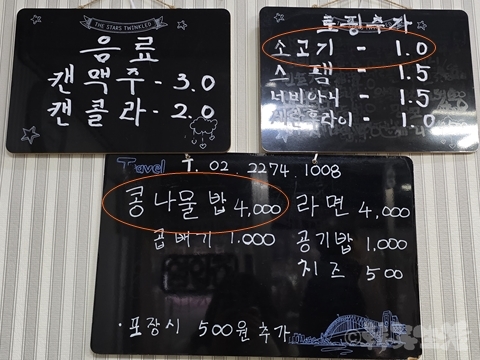 THE STARS TWINKLED
음료
캔맥주 - 3.0
캔콜라 - 2.0
토핑추가
소고기 - 1.0
스팸 - 1.5
너비아니 - 1.5
계란후라이 - 1.0
Travel T. 02. 2274. 1008
콩나물밥 4,000 라면 4,000
곱배기 1.000 공기밥 1,000
치즈 500
· 포장시 500원 추가